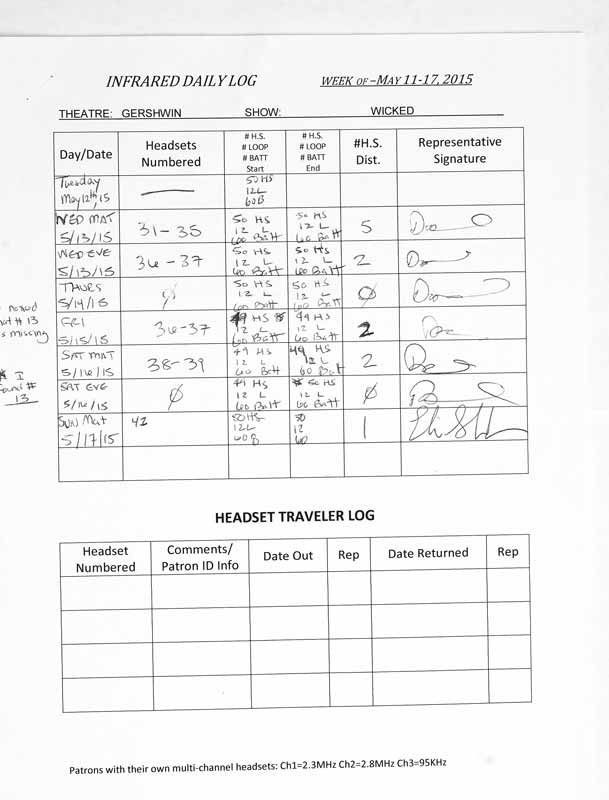 INFRARED DAILY LOG WEEK OF –MAY 11-17, 2015
THEATRE: GERSHWIN SHOW: WICKED
Day/Date Headsets Numbered # H.S. # LOOP # BATT Start # H.S. # LOOP # BATT End #H.S. Dist. Representative Signature
Tuesday May 12th, 15 — 50 HS 12L 60B
WED MAT 5/13/15 31-35 50 HS 12 L 60 Batt 50 HS 12 L 60 Batt 5
WED EVE 5/13/15 36-37 50 HS 12 L 60 Batt 50 HS 12 L 60 Batt 2
THURS 5/14/15 Ø 50 HS 12 L 60 Batt 50 HS 12 L 60 Batt Ø
FRI 5/15/15 36-37 49 HS 12 L 60 Batt 49 HS 12 L 60 Batt 2
SAT MAT 5/16/15 38-39 49 HS 12 L 60 Batt 49 HS 12 L 60 Batt 2
SAT EVE 5/16/15 Ø 49 HS 12 L 60 Batt * 50 HS 12 L 60 Batt Ø
SUN Mat 5/17/15 42 50HS 12L 60B 50 12 60 1
# 13
missing
* I
#
13
HEADSET TRAVELER LOG
Headset Numbered Comments/ Patron ID Info Date Out Rep Date Returned Rep
Patrons with their own multi-channel headsets: Ch1=2.3MHz Ch2=2.8MHz Ch3=95KHz